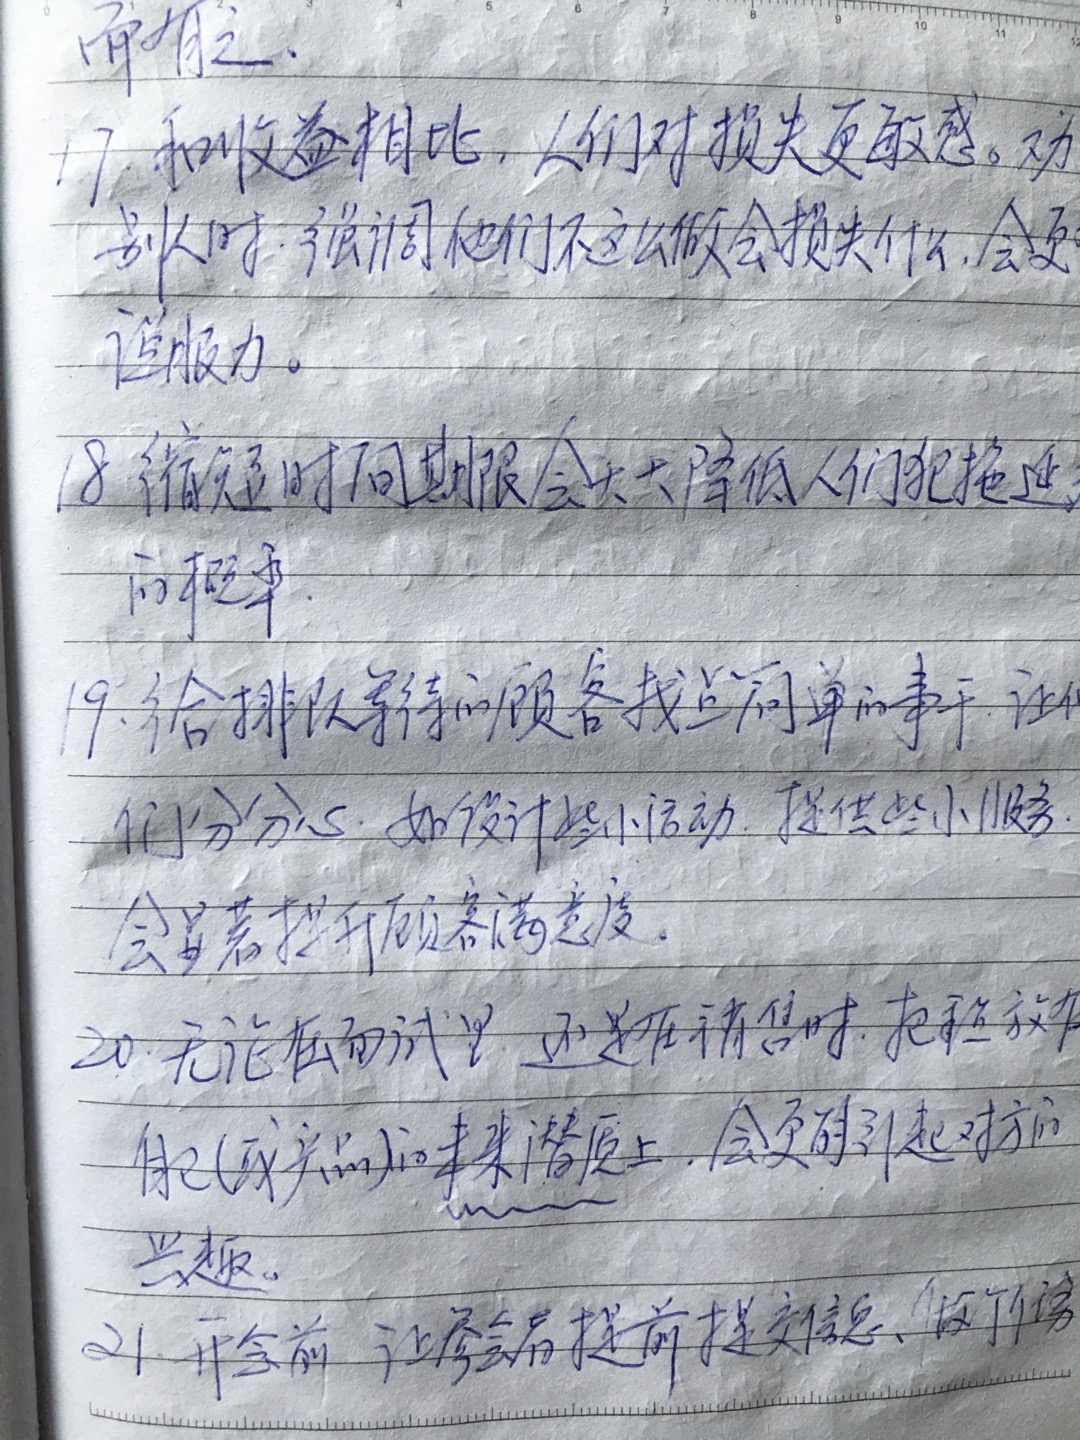 而有之.
17.和收益相比,人们对损失更敏感。劝
别人时.强调他们不这么做会损失什么.会更
说服力。
18缩短时间期限会大大降低人们犯拖延
的概率.
19.给排队等待的顾客找点简单的事干.让他
们分分心.如设计些小活动.提供些小服务.
会显著提升顾客满意度.
20.无论在面试里 还是在销售时.把重点放在
自己(或产品)的未来潜质上.会更能引起对方的
兴趣。
21.开会前 让参会者提前提交信息、做个